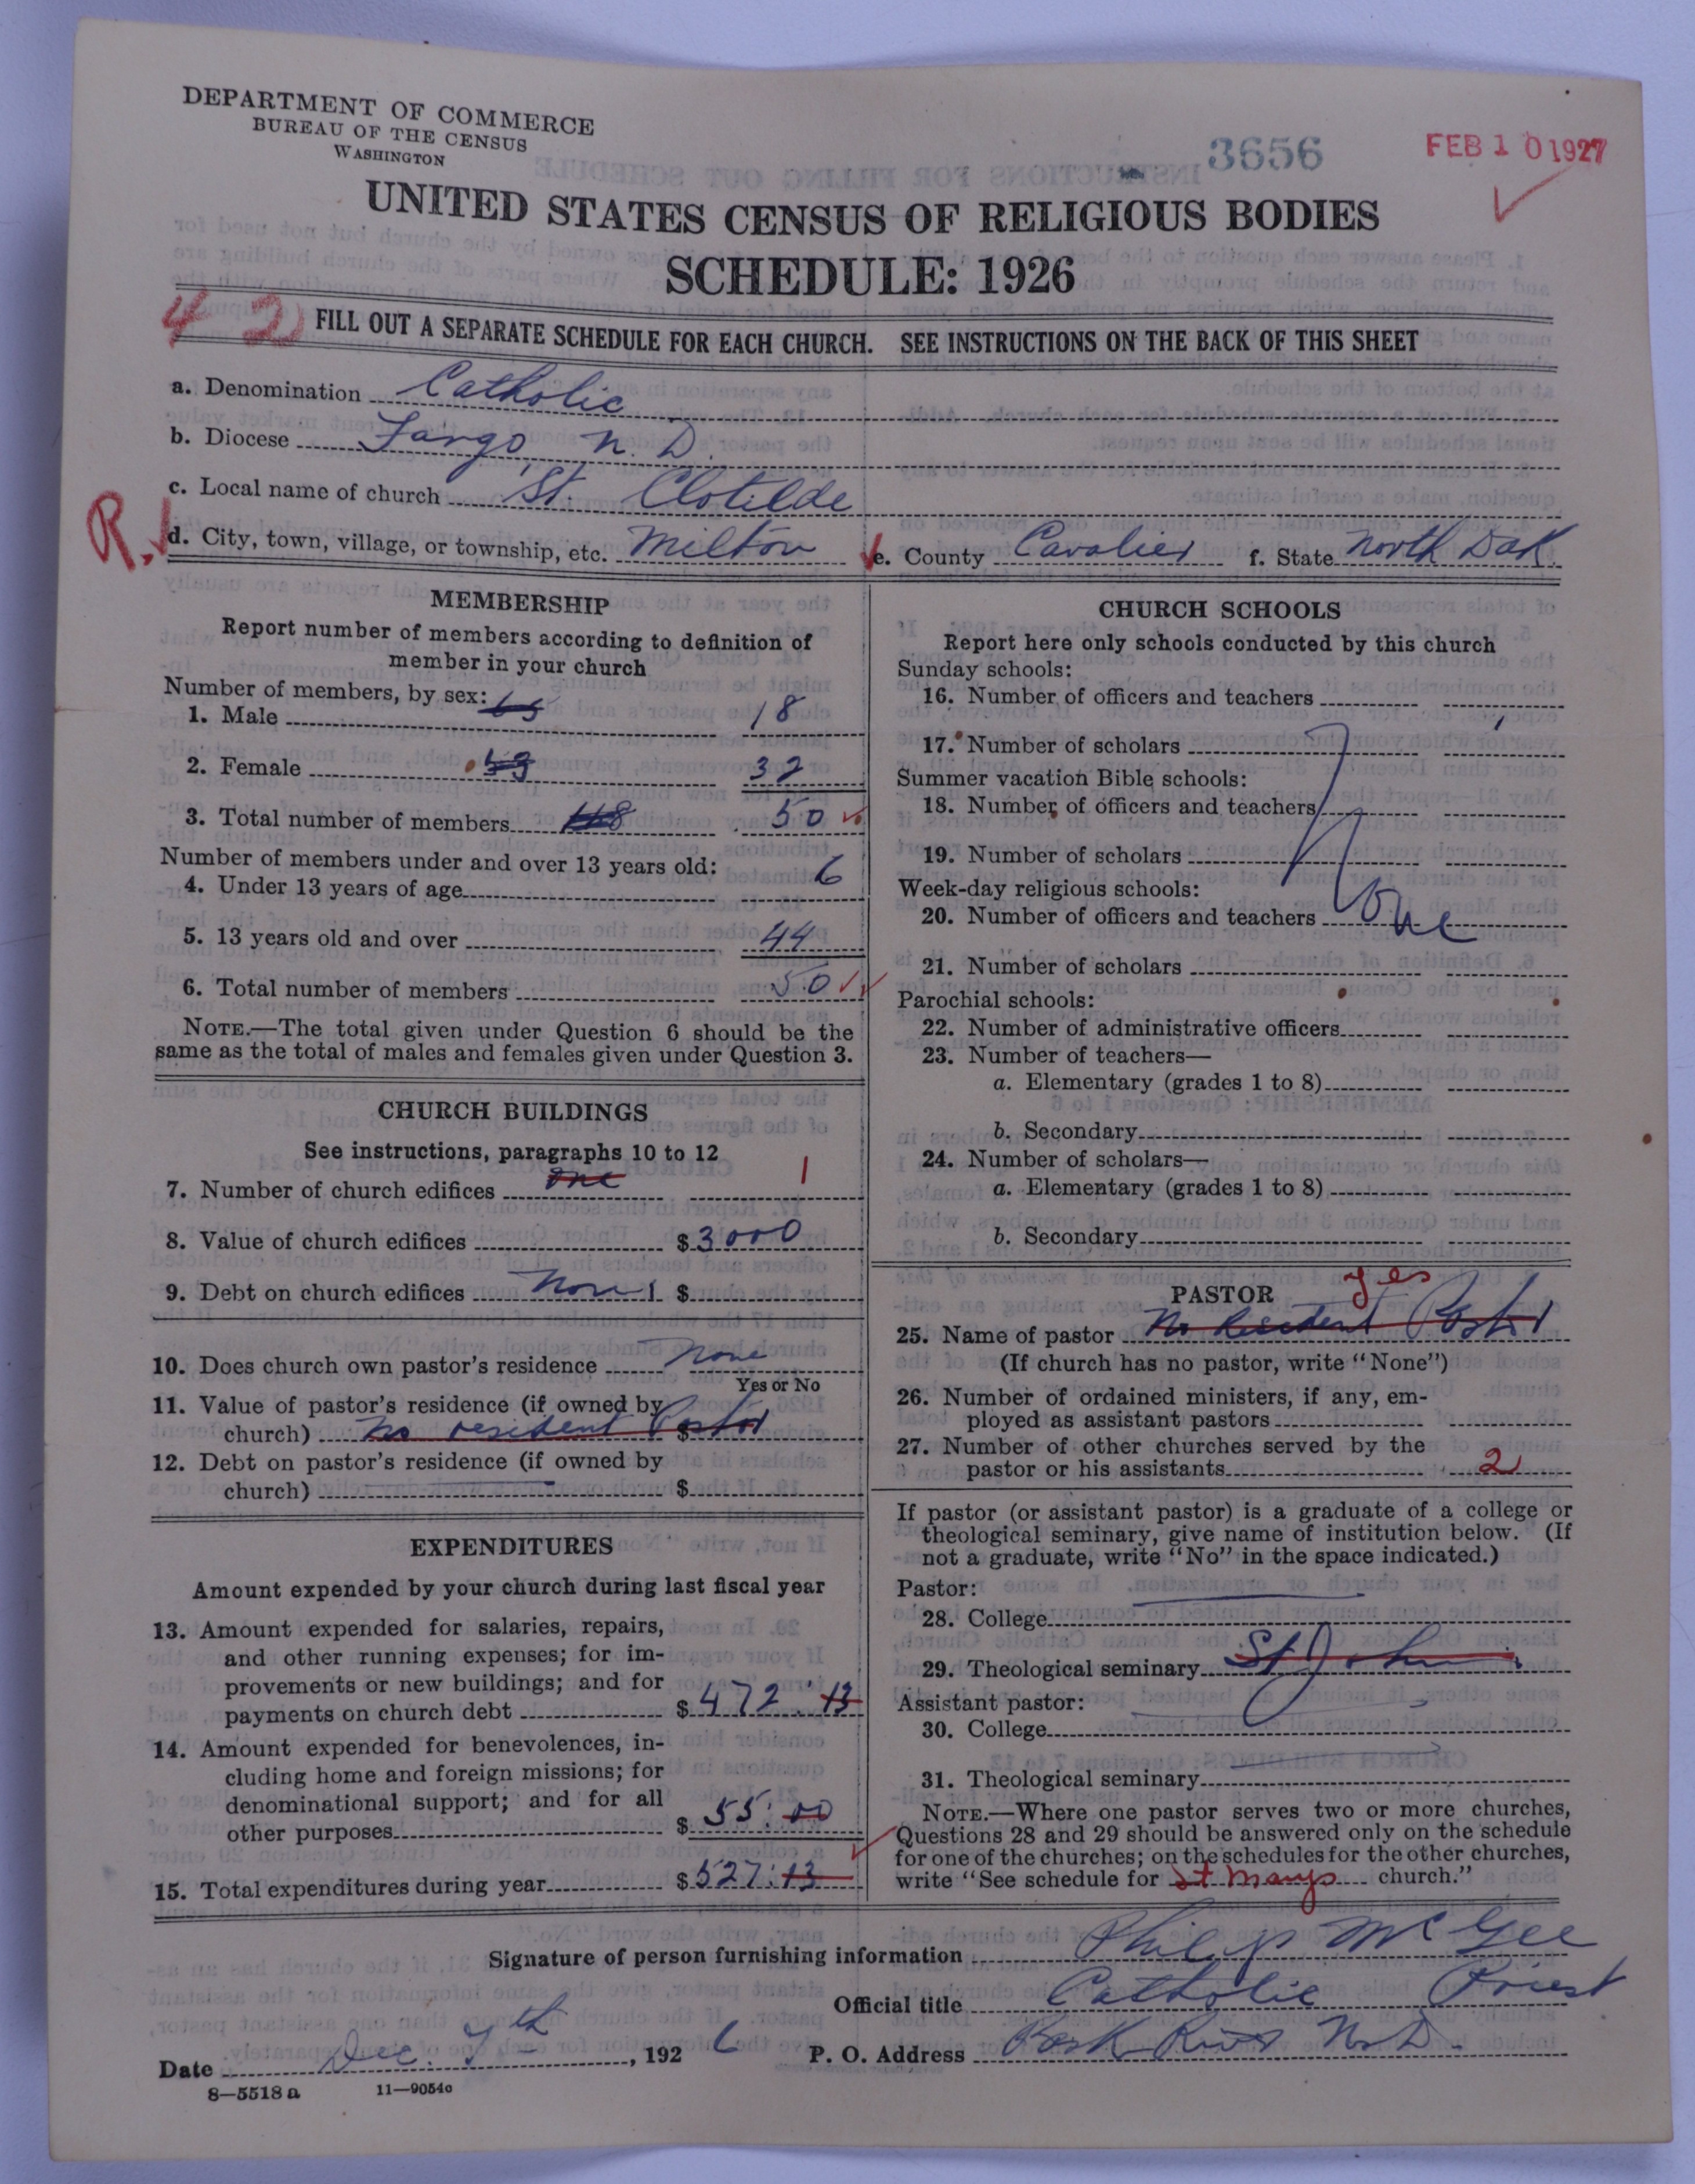 DEPARTMENT OF COMMERCE
BUREAU OF THE CENSUS
WASHINGTON
3656
FEB 10 1927
UNITED STATES CENSUS OF RELIGIOUS BODIES
SCHEDULE: 1926
42
FILL OUT A SEPARATE SCHEDULE FOR EACH CHURCH. SEE INSTRUCTIONS ON THE BACK OF THIS SHEET
a. Denomination Catholic
b. Diocese Fargo, N. D.
c. Local name of church St. Clotilde
R. d. City, town, village, or township, etc. Milton e. County Cavalier f. State North Dak.
MEMBERSHIP
Report number of members according to definition of
member in your church
Number of members, by sex:
1. Male 65 18
2. Female 53 32
3. Total number of members 118 50
Number of members under and over 13 years old:
4. Under 13 years of age 6
5. 13 years old and over 44
6. Total number of members 50
NOTE.—The total given under Question 6 should be the
same as the total of males and females given under Question 3.
CHURCH BUILDINGS
See instructions, paragraphs 10 to 12
7. Number of church edifices one 1
8. Value of church edifices $3000
9. Debt on church edifices None $
10. Does church own pastor's residence none
Yes or No
11. Value of pastor's residence (if owned by
church) no resident Pastor $
12. Debt on pastor's residence (if owned by
church) $
EXPENDITURES
Amount expended by your church during last fiscal year
13. Amount expended for salaries, repairs,
and other running expenses; for im-
provements or new buildings; and for
payments on church debt $472.13
14. Amount expended for benevolences, in-
cluding home and foreign missions; for
denominational support; and for all
other purposes $55.00
15. Total expenditures during year $527.13
CHURCH SCHOOLS
Report here only schools conducted by this church
Sunday schools:
16. Number of officers and teachers
17. Number of scholars
Summer vacation Bible schools:
18. Number of officers and teachers
19. Number of scholars
Week-day religious schools:
20. Number of officers and teachers None
21. Number of scholars
Parochial schools:
22. Number of administrative officers
23. Number of teachers—
a. Elementary (grades 1 to 8)
b. Secondary
24. Number of scholars—
a. Elementary (grades 1 to 8)
b. Secondary
PASTOR yes
25. Name of pastor No Resident Pastor
(If church has no pastor, write "None")
26. Number of ordained ministers, if any, em-
ployed as assistant pastors
27. Number of other churches served by the
pastor or his assistants 2
If pastor (or assistant pastor) is a graduate of a college or
theological seminary, give name of institution below. (If
not a graduate, write "No" in the space indicated.)
Pastor:
28. College
29. Theological seminary St John
Assistant pastor:
30. College
31. Theological seminary
NOTE.—Where one pastor serves two or more churches,
Questions 28 and 29 should be answered only on the schedule
for one of the churches; on the schedules for the other churches,
write "See schedule for St Marys church."
Signature of person furnishing information Philip McGee
Official title Catholic Priest
Date Dec. 7th, 1926 P. O. Address Park River N. D.
8—5518 a 11—9054c